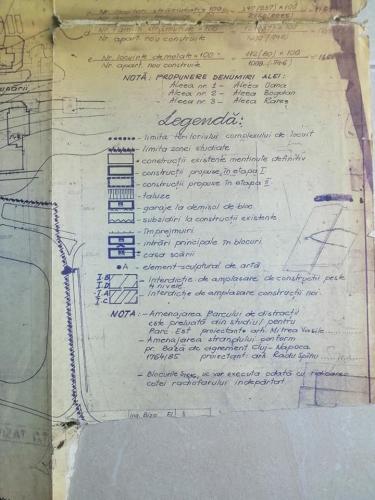 Nr. apart. nou construite
e. Nr. locuințe demolate × 100
Nr. apart. nou construite
NOTĂ: PROPUNERE DENUMIRI ALEI:
Aleea nr. 1 - Aleea Oana
Aleea nr. 2 - Aleea Bogdan
Aleea nr. 3 - Aleea Rareș
Legendă:
limita teritoriului complexului de locuit
limita zonei studiate
construcții existente menținute definitiv
construcții propuse în etapa I
construcții propuse în etapa II
taluze
garaje la demisol de bloc
subzidiri la construcții existente
împrejmuiri
intrări principale în blocuri
casa scării
A element sculptural de artă
Interdicție de amplasare de construcții peste
4 nivele
Interdicție de amplasare construcții noi
NOTA: - Amenajarea Parcului de distracții
este preluată din studiul pentru
Parc Est proiectante arh. Mitrea Vasile
- Amenajarea ștrandului conform
pr. Bază de agrement Cluj-Napoca
1764/85 proiectant: arh. Radu Spînu
- Blocurile se vor executa odată cu ridicarea
cotei radiofarului îndepărtat.
ing. Bizo El